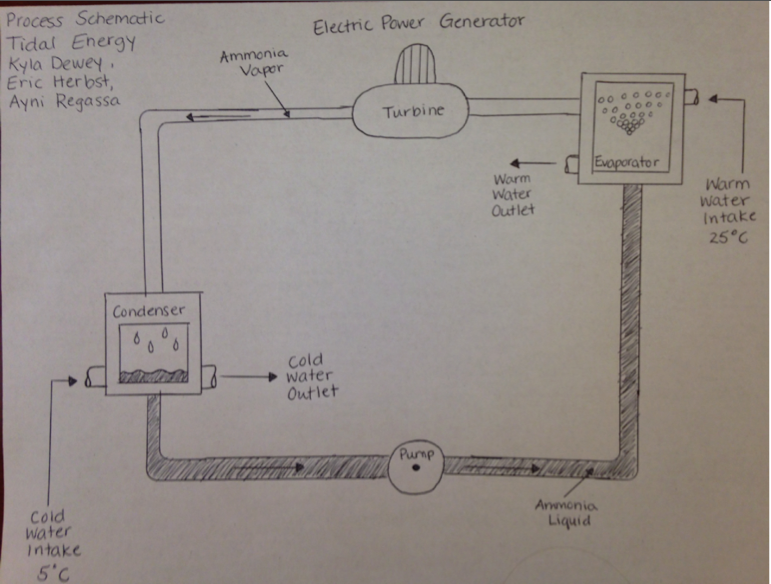 Process Schematic
Tidal Energy
Kyla Dewey,
Eric Herbst,
Ayni Regassa
Electric Power Generator
Ammonia
Vapor
Turbine
Evaporator
Warm
Water
Outlet
Warm
Water
Intake
25°C
Condenser
Cold
Water
Outlet
Pump
Ammonia
Liquid
Cold
Water
Intake
5°C